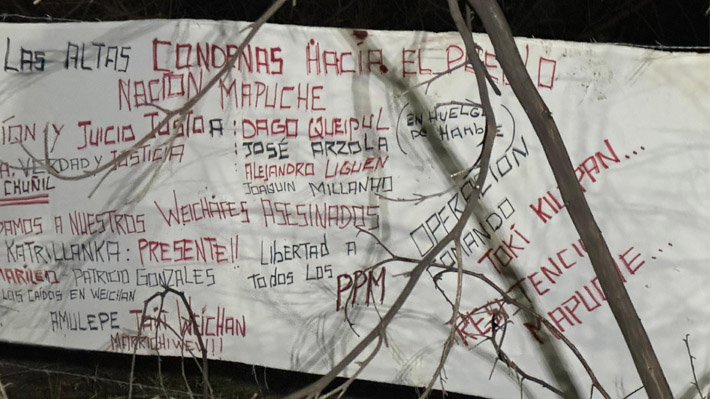 LAS ALTAS CONDENAS HACÍA EL PUEBLO
NACIÓN MAPUCHE
IÓN Y JUICIO JUSTO A : DAGO QUEIPUL (EN HUELGA DE HAMBRE)
A. VERDAD Y JUSTICIA : JOSÉ ARZOLA
CHUÑIL ALEJANDRO LIGUEN
JOAQUIN MILLANAO
DAMOS A NUESTROS WEICHAFES ASESINADOS
KATRILLANKA: PRESENTE!!
PATRICIO GONZALES
LOS CAÍDOS EN WEICHAN
LIBERTAD A
TODOS LOS
PPM
AMULEPE TAIÑ WEICHAN
MARRICHIWEW!!!
OPERACIÓN
COMANDO
TOKI KILAPAN...
RESISTENCIA
MAPUCHE...